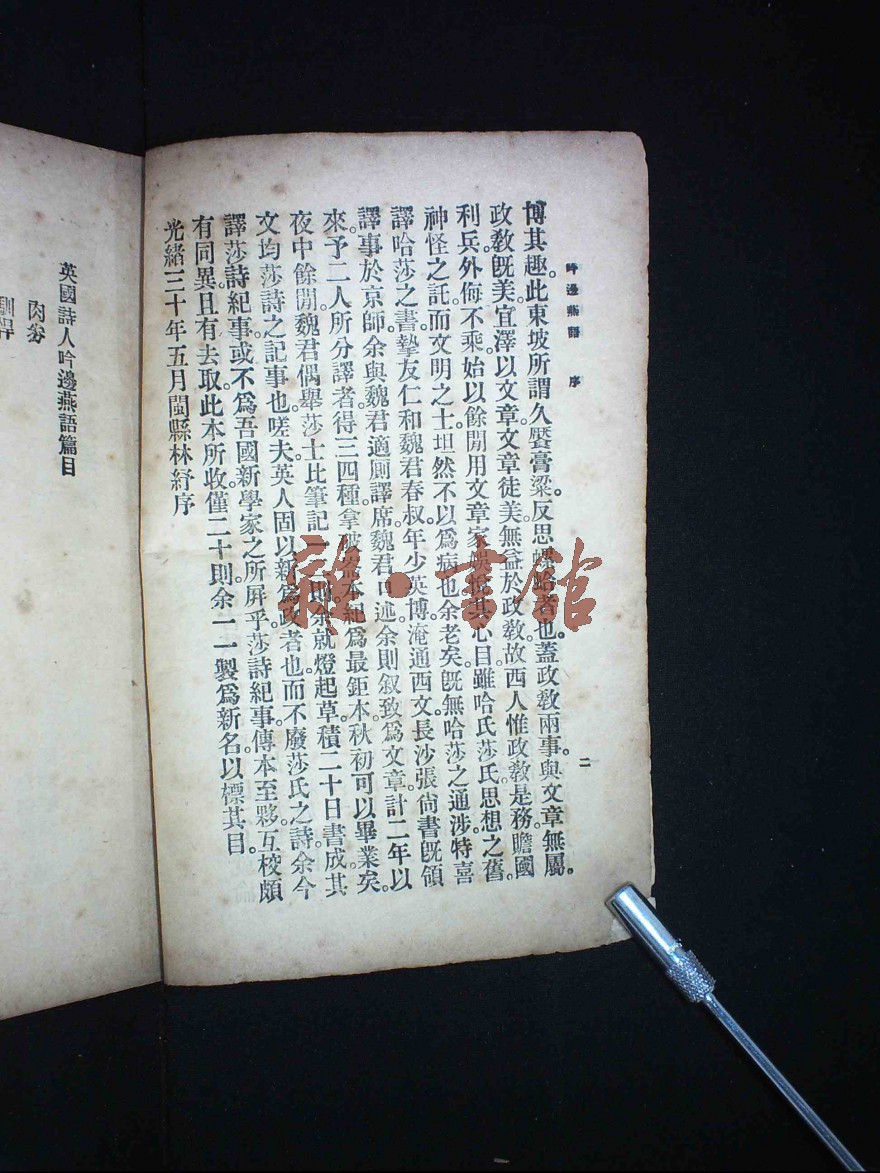 吟邊燕語 序
二
博其趣。此東坡所謂久饜膏粱。反思螺蛤者也。蓋政敎兩事。與文章無屬。
政敎旣美。宜澤以文章。文章徒美。無益於政敎。故西人惟政敎是務。贍國
利兵。外侮不乘。始以餘閒用文章家娛悅其心目。雖哈氏莎氏。思想之舊。
神怪之託。而文明之士。坦然不以爲病也。余老矣。旣無哈莎之通涉。特喜
譯哈莎之書。摯友仁和魏君春叔。年少英博。淹通西文。長沙張尙書旣領
譯事於京師。余與魏君適厠譯席。魏君口述。余則叙致爲文章。計二年以
來。予二人所分譯者得三四種。拿破崙本紀爲最鉅。本秋初可以畢業矣。
夜中餘閒。魏君偶舉莎士比筆記一二則。余就燈起草。積二十日書成。其
文均莎詩之記事也。嗟夫。英人固以新爲政者也。而不廢莎氏之詩。余今
譯莎詩紀事。或不爲吾國新學家之所屏乎。莎詩紀事。傳本至夥。互校頗
有同異。且有去取。此本所收僅二十則。余一一製爲新名。以標其目。
光緒三十年五月閩縣林紓序
英國詩人吟邊燕語篇目
肉劵
馴悍
雜·書館